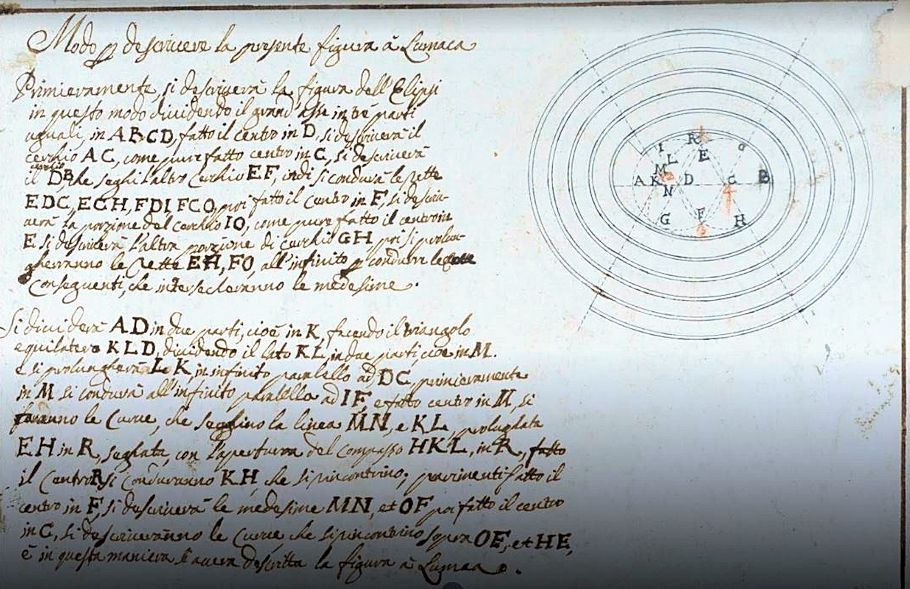 Modo p descrivere la presente figura à Lumaca
Primieramente si descriverà la figura dell'Elipsi
in questo modo dividendo il grand'Asse in trè parti
uguali, in ABCD, fatto il centro in D, si descriverà il
cerchio AC, come pure fatto centro in C, si descriverà
il cerchio DB, che seghi l'altro Cerchio EF, indi si condurà le rette
EDC, ECH, FDI, FCO, poi fatto il Centro in F, si descri-
verà la porzione del cerchio IO, come pure fatto il centro in
E si descriverà l'altra porzione di cerchio GH poi si prolun-
gheranno le rette EH, FO, all'infinito p condurvi le
conseguenti, che intersecheranno le medesime.
Si dividerà AD in due parti, cioè in K, facendo il triangolo
equilatero KLD, dividendo il lato KL, in due parti cioè in M.
e si prolungherà LK, in infinito paralello ad DC, primieramente
in M si condurà all'infinito paralello ad IF, e fatto centro in N, si
faranno le Curve, che seghino la linea MN, e KL, prolughata
EH in R, seghata, con l'apertura del compasso HKL, in R, fatto
il Centro R si conduranno KH, che si rincontrino; parimenti fatto il
centro in F, si descriverà le medesime MN, et OF poi fatto il centro
in C, si descriverànno le Curve che si rincontrino sopra OF, et HE,
è in questa maniera si averà descritta la figura à Lumaca.
I R O
L E
M
A K D C B
N
G F H